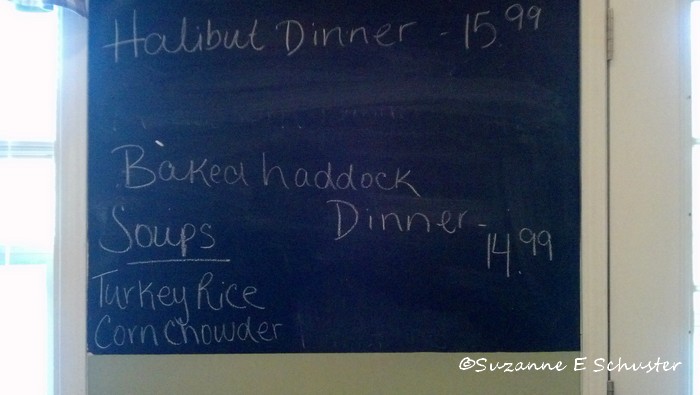 Halibut Dinner - 15.99
Baked haddock
Dinner - 14.99
Soups
Turkey Rice
Corn Chowder
©Suzanne E Schuster